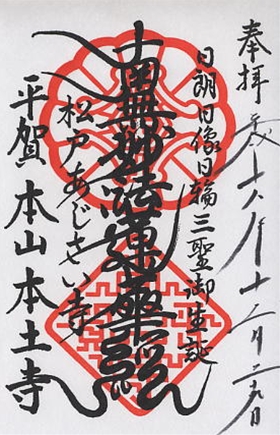 奉拝
平成十六年十二月二十九日
日朗日像日輪三聖御生誕
南無妙法蓮華経
松戸あじさい寺
平賀本山本土寺